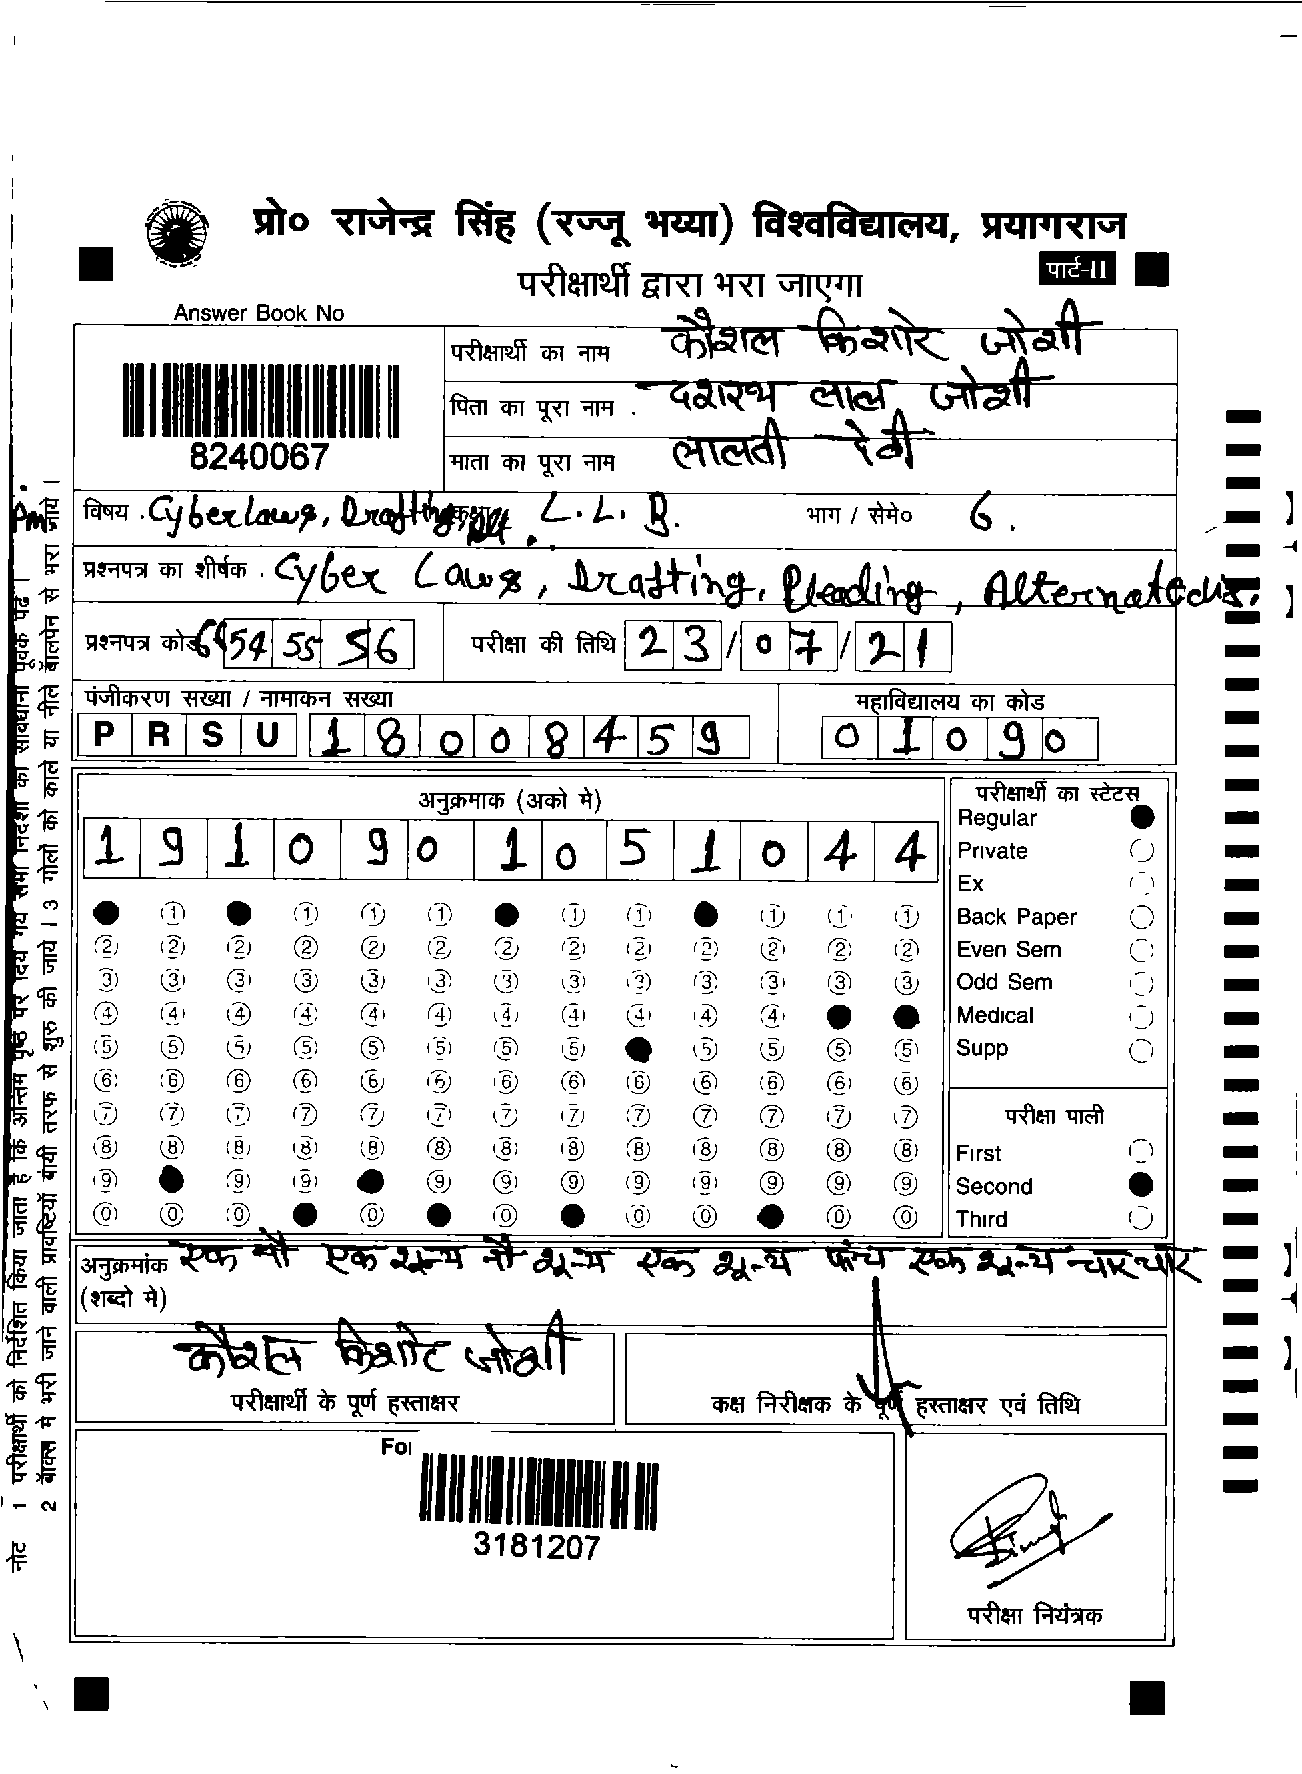 प्रो० राजेन्द्र सिंह (रज्जू भय्या) विश्वविद्यालय, प्रयागराज
परीक्षार्थी द्वारा भरा जाएगा
पार्ट-II
Answer Book No
8240067
परीक्षार्थी का नाम कौशल किशोर जोशी
पिता का पूरा नाम . दशरथ लाल जोशी
माता का पूरा नाम लालती देवी
विषय . Cyberlaws, Drafting, Alt. कक्षा L.L.B. भाग / सेमे० 6.
प्रश्नपत्र का शीर्षक . Cyber Laws, Drafting, Pleading, Alternatedis.
प्रश्नपत्र कोड 54 55 56 परीक्षा की तिथि 23/07/21
पंजीकरण सख्या / नामाकन सख्या
PRSU 18008459
महाविद्यालय का कोड
01090
अनुक्रमाक (अको मे)
1 9 1 0 9 0 1 0 5 1 0 4 4
1 1 1 1 1 1 1 1 1
2 2 2 2 2 2 2 2 2 2 2 2 2
3 3 3 3 3 3 3 3 3 3 3 3 3
4 4 4 4 4 4 4 4 4 4 4
5 5 5 5 5 5 5 5 5 5 5 5
6 6 6 6 6 6 6 6 6 6 6 6 6
7 7 7 7 7 7 7 7 7 7 7 7 7
8 8 8 8 8 8 8 8 8 8 8 8 8
9 9 9 9 9 9 9 9 9 9 9
0 0 0 0 0 0 0 0 0
परीक्षार्थी का स्टेटस
Regular
Private
Ex
Back Paper
Even Sem
Odd Sem
Medical
Supp
परीक्षा पाली
First
Second
Third
अनुक्रमांक एक नौ एक शून्य नौ शून्य एक शून्य पांच एक शून्य चार चार
(शब्दो मे)
कौशल किशोर जोशी
परीक्षार्थी के पूर्ण हस्ताक्षर
कक्ष निरीक्षक के पूर्ण हस्ताक्षर एवं तिथि
For
3181207
परीक्षा नियंत्रक
नोट 1 परीक्षार्थी को निर्देशित किया जाता है कि अन्तिम पृष्ठ पर दिये गये सभी निर्देशो को सावधानी पूर्वक पढे।
2 बॉक्स मे भरी जाने वाली प्रविष्टियॉ बायी तरफ से शुरु की जाये। 3 गोलो को काले या नीले बॉलपेन से भरा जाये।